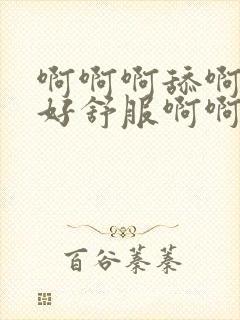 啊啊啊舔啊
好舒服啊啊
百谷蓁蓁